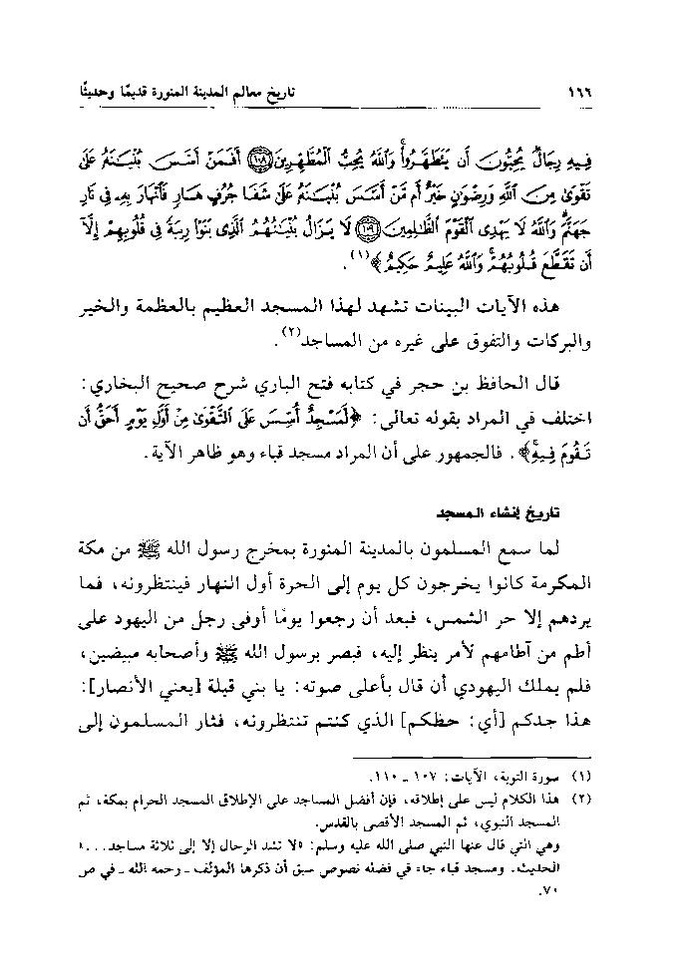 ١٦٦ تاريخ معالم المدينة المنورة قديمًا وحديثًا
فِيهِ رِجَالٌ يُحِبُّونَ أَن يَتَطَهَّرُوا۟ ۚ وَٱللَّهُ يُحِبُّ ٱلْمُطَّهِّرِينَ ۝١٠٨ أَفَمَنْ أَسَّسَ بُنْيَٰنَهُۥ عَلَىٰ
تَقْوَىٰ مِنَ ٱللَّهِ وَرِضْوَٰنٍ خَيْرٌ أَم مَّنْ أَسَّسَ بُنْيَٰنَهُۥ عَلَىٰ شَفَا جُرُفٍ هَارٍ فَٱنْهَارَ بِهِۦ فِى نَارِ
جَهَنَّمَ ۗ وَٱللَّهُ لَا يَهْدِى ٱلْقَوْمَ ٱلظَّٰلِمِينَ ۝١٠٩ لَا يَزَالُ بُنْيَٰنُهُمُ ٱلَّذِى بَنَوْا۟ رِيبَةً فِى قُلُوبِهِمْ إِلَّآ
أَن تَقَطَّعَ قُلُوبُهُمْ ۗ وَٱللَّهُ عَلِيمٌ حَكِيمٌ﴾(١).
هذه الآيات البينات تشهد لهذا المسجد العظيم بالعظمة والخير
والبركات والتفوق على غيره من المساجد(٢).
قال الحافظ بن حجر في كتابه فتح الباري شرح صحيح البخاري:
اختلف في المراد بقوله تعالى: ﴿لَمَسْجِدٌ أُسِّسَ عَلَى ٱلتَّقْوَىٰ مِنْ أَوَّلِ يَوْمٍ أَحَقُّ أَن
تَقُومَ فِيهِ ۚ﴾. فالجمهور على أن المراد مسجد قباء وهو ظاهر الآية.
تاريخ إنشاء المسجد
لما سمع المسلمون بالمدينة المنورة بمخرج رسول الله ﷺ من مكة
المكرمة كانوا يخرجون كل يوم إلى الحرة أول النهار فينتظرونه، فما
يردهم إلا حر الشمس، فبعد أن رجعوا يومًا أوفى رجل من اليهود على
أطم من آطامهم لأمر ينظر إليه، فبصر برسول الله ﷺ وأصحابه مبيضين،
فلم يملك اليهودي أن قال بأعلى صوته: يا بني قيلة [يعني الأنصار]:
هذا جدكم [أي: حظكم] الذي كنتم تنتظرونه، فثار المسلمون إلى
(١) سورة التوبة، الآيات: ١٠٧ ـ ١١٠.
(٢) هذا الكلام ليس على إطلاقه، فإن أفضل المساجد على الإطلاق المسجد الحرام بمكة، ثم
المسجد النبوي، ثم المسجد الأقصى بالقدس.
وهي التي قال عنها النبي صلى الله عليه وسلم: «لا تشد الرحال إلا إلى ثلاثة مساجد...»
الحديث. ومسجد قباء جاء في فضله نصوص سبق أن ذكرها المؤلف ـ رحمه الله ـ في ص
٧٠.